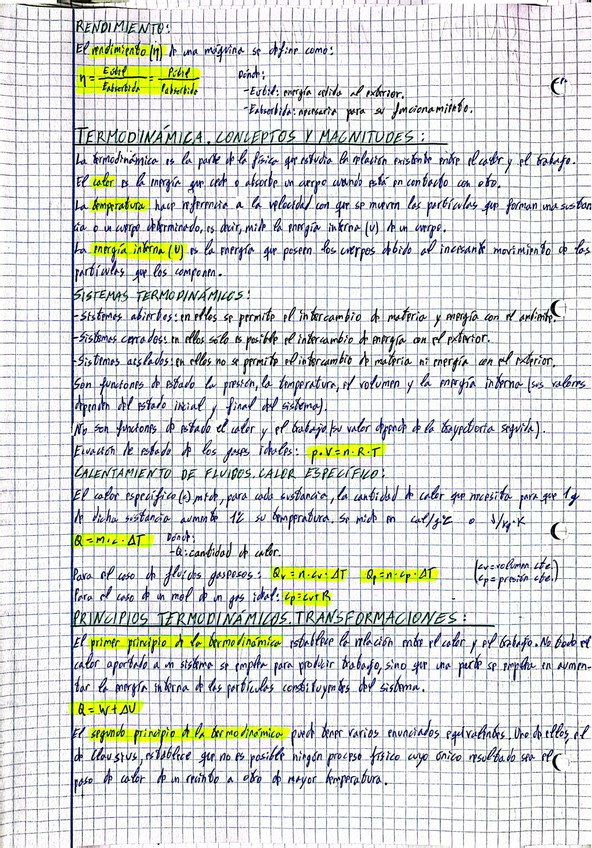 RENDIMIENTO:
El rendimiento (η) de una máquina se define como:
η = Eútil / Eabsorbida = Pútil / Pabsorbida
Donde:
-Eútil: energía cedida al exterior.
-Eabsorbida: necesaria para su funcionamiento.
TERMODINÁMICA. CONCEPTOS Y MAGNITUDES:
La termodinámica es la parte de la física que estudia la relación existente entre el calor y el trabajo.
El calor es la energía que cede o absorbe un cuerpo cuando está en contacto con otro.
La temperatura hace referencia a la velocidad con que se mueven las partículas que forman una sustan
cia o un cuerpo determinado, es decir, mide la energía interna (U) de un cuerpo.
La energía interna (U) es la energía que poseen los cuerpos debido al incesante movimiento de las
partículas que los componen.
SISTEMAS TERMODINÁMICOS:
-Sistemas abiertos: en ellos se permite el intercambio de materia y energía con el ambiente.
-Sistemas cerrados: en ellos sólo es posible el intercambio de energía con el exterior.
-Sistemas aislados: en ellos no se permite el intercambio de materia ni energía con el exterior.
Son funciones de estado la presión, la temperatura, el volumen y la energía interna (sus valores
dependen del estado inicial y final del sistema).
No son funciones de estado el calor y el trabajo (su valor depende de la trayectoria seguida).
Ecuación de estado de los gases ideales: p·V=n·R·T
CALENTAMIENTO DE FLUIDOS. CALOR ESPECÍFICO:
El calor específico (c) mide, para cada sustancia, la cantidad de calor que necesita para que 1g
de dicha sustancia aumente 1ºC su temperatura. Se mide en cal/gºC o J/kg·K
Q = m·c·ΔT
Donde:
-Q: cantidad de calor.
Para el caso de fluidos gaseosos: Qv = n·cv·ΔT Qp = n·cp·ΔT
(cv = volumen cte.
cp = presión cte.)
Para el caso de un mol de un gas ideal: cp=cv+R
PRINCIPIOS TERMODINÁMICOS. TRANSFORMACIONES:
El primer principio de la termodinámica establece la relación entre el calor y el trabajo. No todo el
calor aportado a un sistema se emplea para producir trabajo, sino que una parte se emplea en aumen-
tar la energía interna de las partículas constituyentes del sistema.
Q = W + ΔU
El segundo principio de la termodinámica puede tener varios enunciados equivalentes. Uno de ellos, el
de Clausius, establece que no es posible ningún proceso físico cuyo único resultado sea el
paso de calor de un recinto a otro de mayor temperatura.